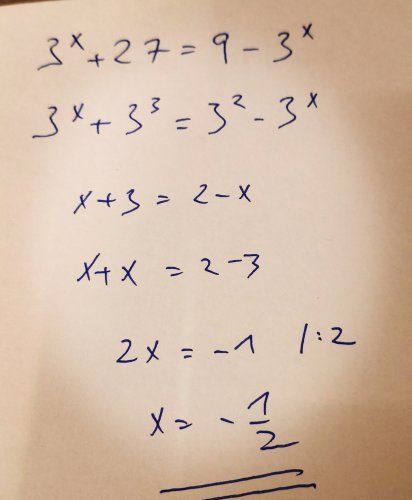 3^x + 27 = 9 - 3^x
3^x + 3^3 = 3^2 - 3^x
x + 3 = 2 - x
x + x = 2 - 3
2x = -1 | : 2
x = - 1/2